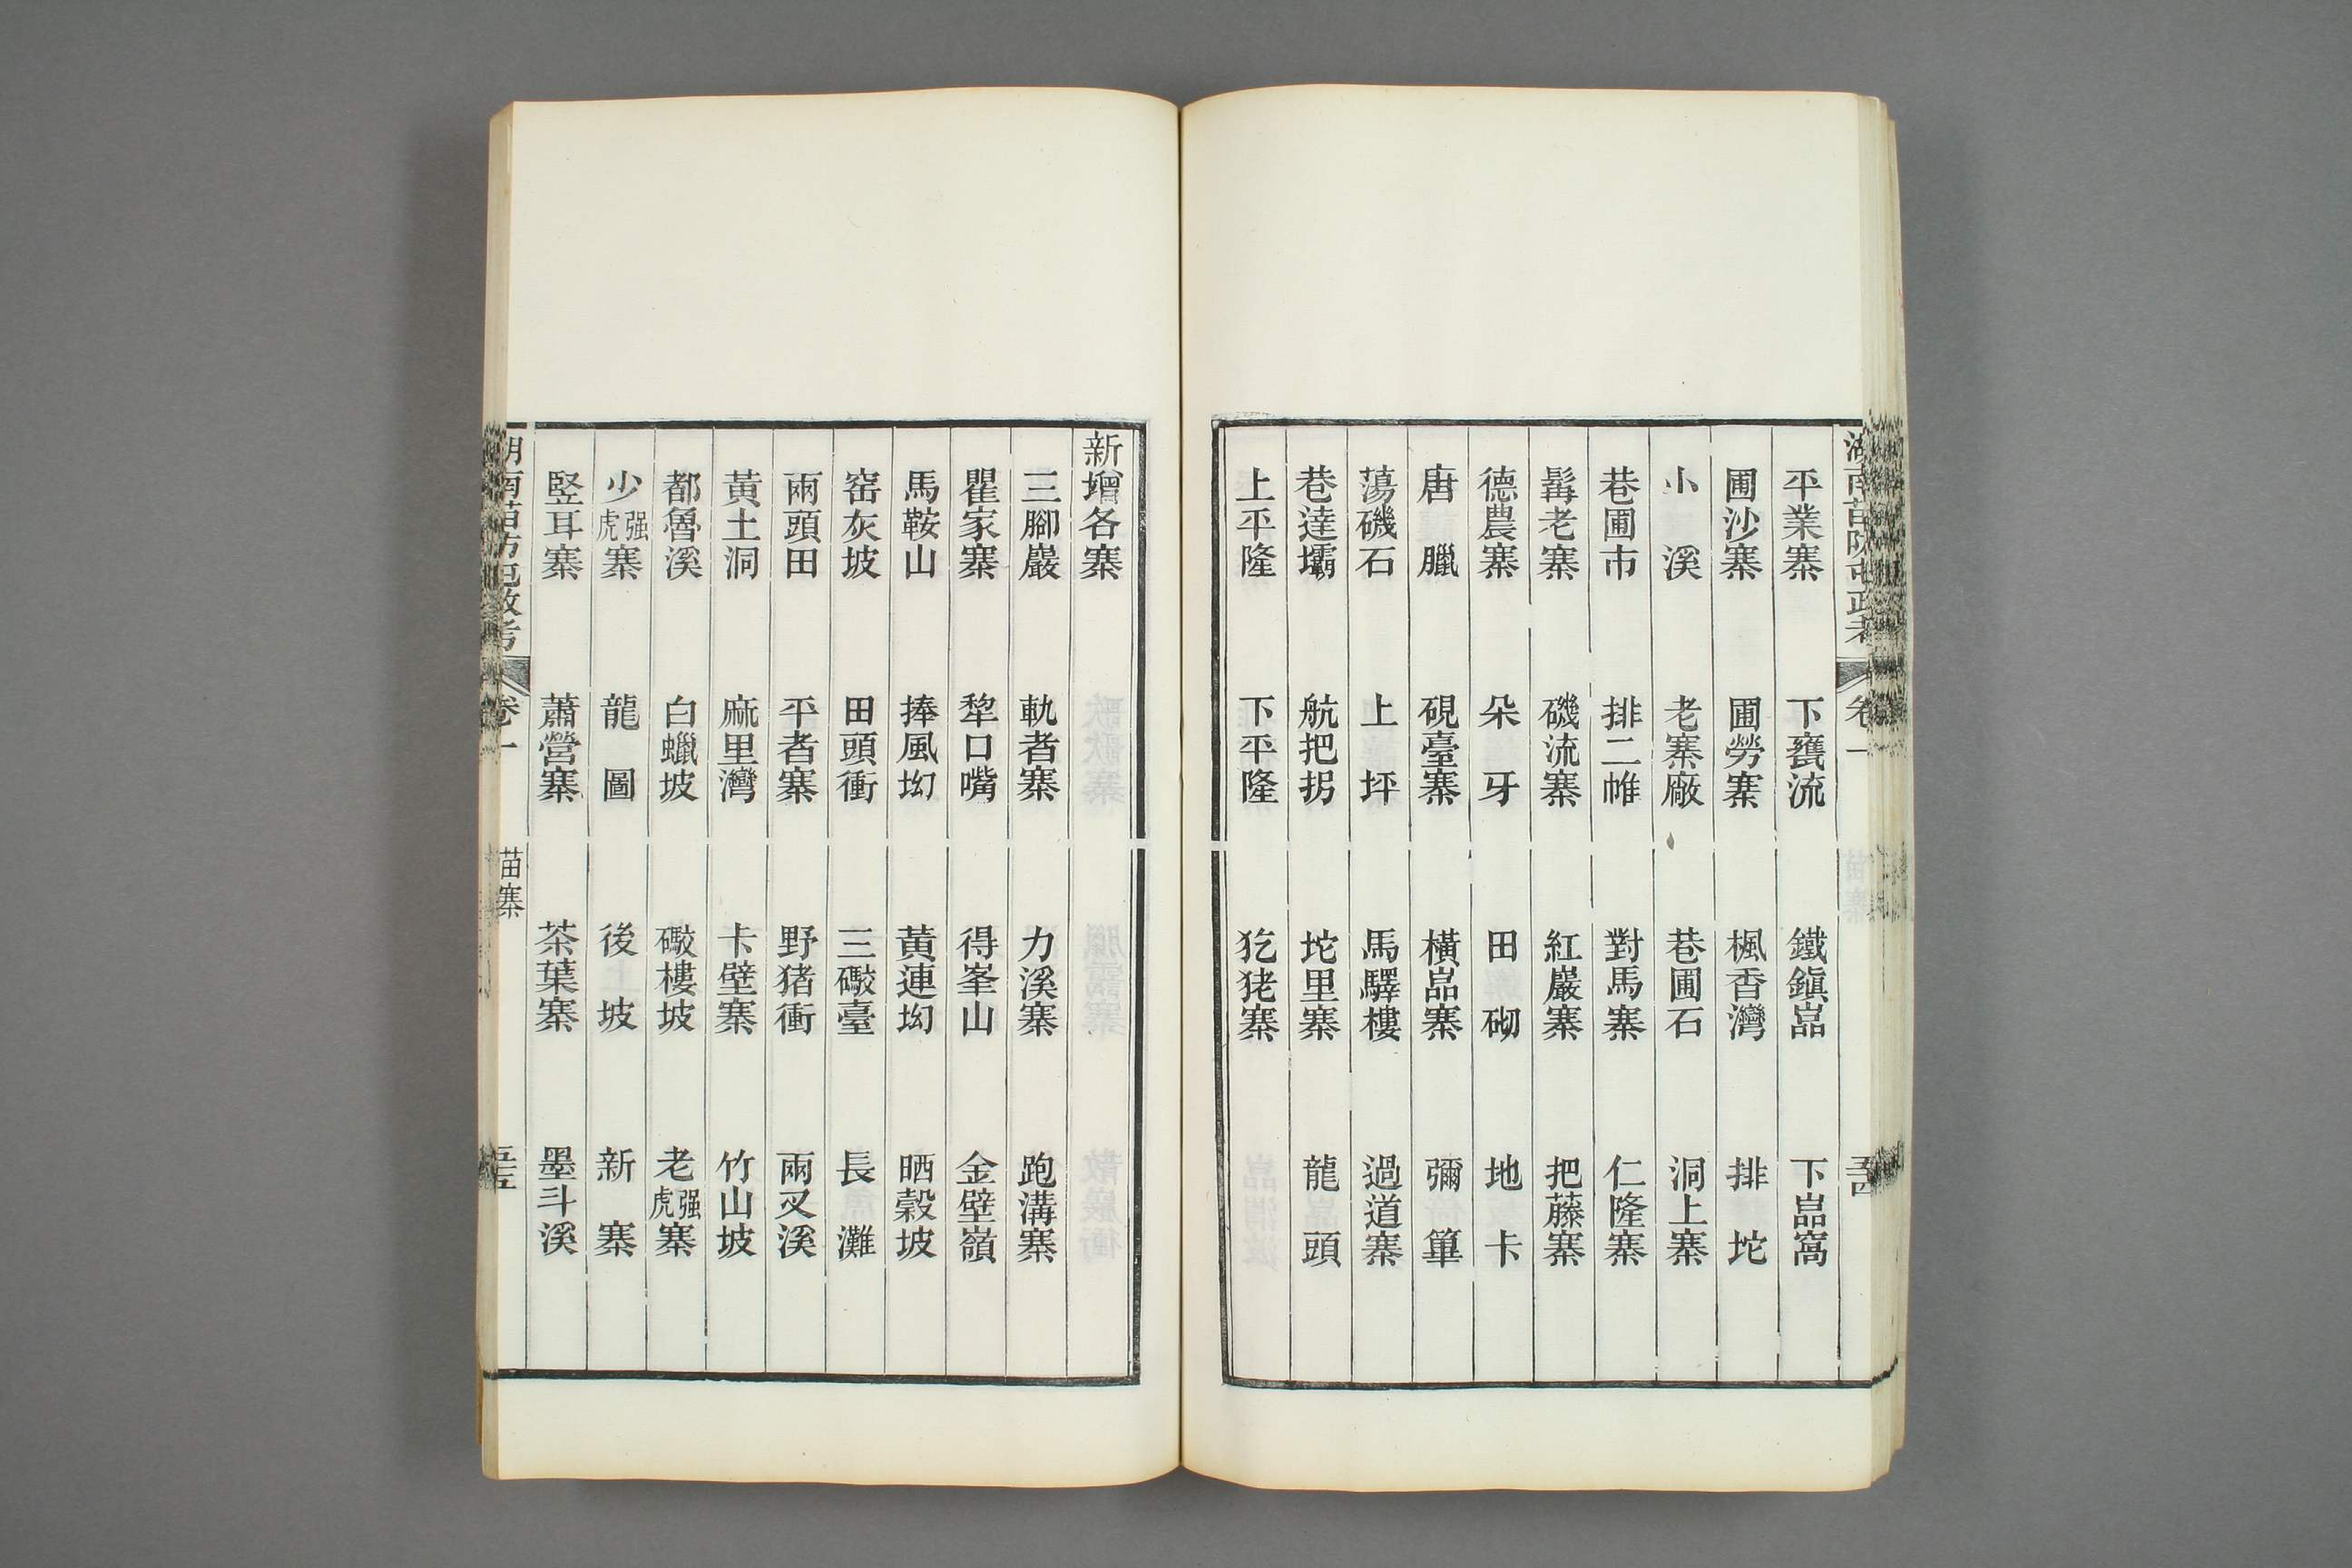 湖南苗防屯政考 卷一 五四
平業寨 下甕流 鐵鎭嵓 下嵓窩
圃沙寨 圃勞寨 楓香灣 排坨
小溪 老寨廠 巷圃石 洞上寨
巷圃市 排二帷 對馬寨 仁隆寨
髯老寨 磯流寨 紅巖寨 把藤寨
德農寨 朵牙 田砌 地卡
唐臘 硯臺寨 橫嵓寨 彌篳
蕩磯石 上坪 馬驛樓 過道寨
巷達壩 航把拐 坨里寨 龍頭
上平隆 下平隆 犵狫寨
新增各寨
三腳巖 軌者寨 力溪寨 跑溝寨
瞿家寨 犂口嘴 得峯山 金壁嶺
馬鞍山 捧風㘭 黃連㘭 晒穀坡
窑灰坡 田頭衝 三礮臺 長灘
兩頭田 平者寨 野猪衝 兩叉溪
黃土洞 麻里灣 卡壁寨 竹山坡
都魯溪 白蠟坡 礮樓坡 老强虎寨
少强虎寨 龍圖 後坡 新寨
竪耳寨 蕭營寨 茶葉寨 墨斗溪
湖南苗防屯政考 卷一 苗寨 五五